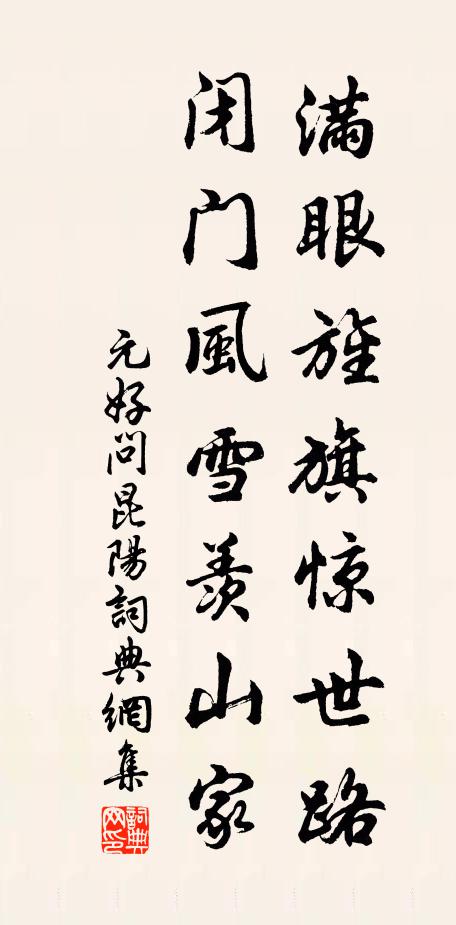 满眼旌旗惊世路
闭门風雪羡山家
元好问昆陽詞典網集
詞典网印